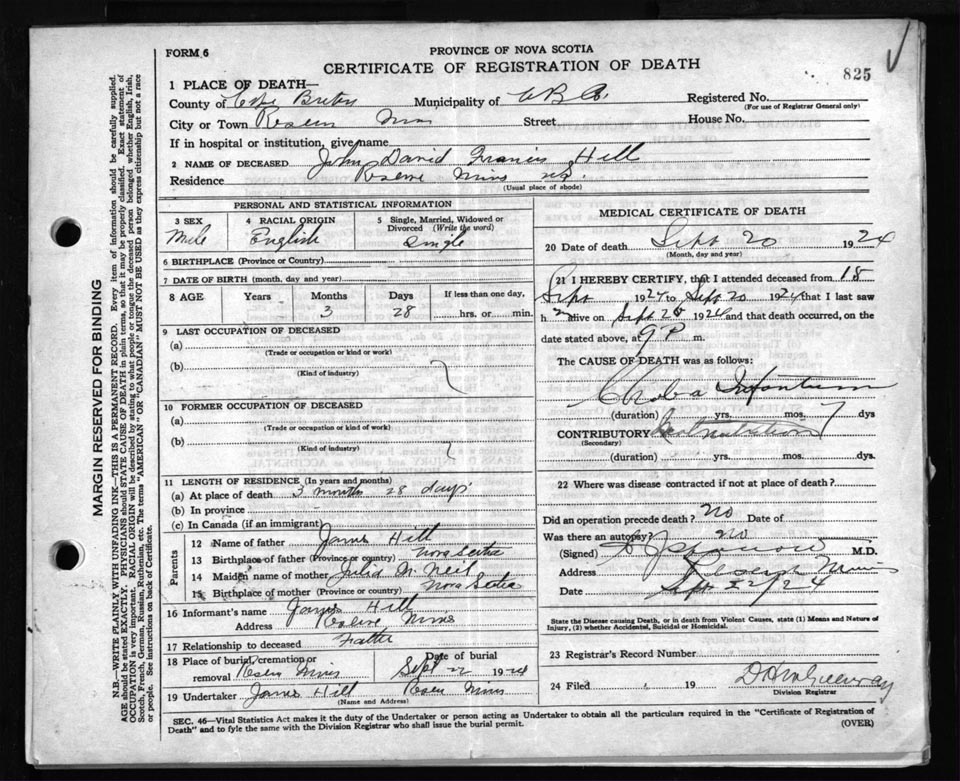 FORM 6
PROVINCE OF NOVA SCOTIA
CERTIFICATE OF REGISTRATION OF DEATH
825
1 PLACE OF DEATH—
County of Cape Breton Municipality of C B Co. Registered No.
(For use of Registrar General only)
City or Town Reserve Mines Street House No.
If in hospital or institution, give name
2 NAME OF DECEASED John David Francis Hill
Residence Reserve Mines NS.
(Usual place of abode)
PERSONAL AND STATISTICAL INFORMATION
3 SEX 4 RACIAL ORIGIN 5 Single, Married, Widowed or Divorced (Write the word)
Male English Single
6 BIRTHPLACE (Province or Country)
7 DATE OF BIRTH (month, day and year)
8 AGE Years Months Days If less than one day,
3 28 hrs. or min.
9 LAST OCCUPATION OF DECEASED
(a)
(Trade or occupation or kind or work)
(b)
(Kind of industry)
10 FORMER OCCUPATION OF DECEASED
(a)
(Trade or occupation or kind of work)
(b)
(Kind of industry)
11 LENGTH OF RESIDENCE (In years and months)
(a) At place of death 3 months 28 days
(b) In province
(c) In Canada (if an immigrant)
Parents
12 Name of father James Hill
13 Birthplace of father (Province or country) Nova Scotia
14 Maiden name of mother Julia Mc Neil
15 Birthplace of mother (Province or country) Nova Scotia
16 Informant's name James Hill
Address Reserve Mines
17 Relationship to deceased Father
18 Place of burial, cremation or removal Reserve Mines Date of burial Sept 22 1924
19 Undertaker James Hill Reserve Mines
(Name and Address)
MEDICAL CERTIFICATE OF DEATH
20 Date of death Sept 20 1924
(Month, day and year)
21 I HEREBY CERTIFY, that I attended deceased from 18
Sept 1924 to Sept 20 1924 that I last saw
h alive on Sept 20 1924 and that death occurred, on
date stated above, at 9 P m.
The CAUSE OF DEATH was as follows:
Cholera Infantum
(duration) yrs. mos. 7 dys
CONTRIBUTORY Malnutrition
(Secondary)
(duration) yrs. mos. dys.
22 Where was disease contracted if not at place of death?
Did an operation precede death? no Date of
Was there an autopsy? no
(Signed) M.D.
Address Reserve Mines
Date Sept 22/24
State the Disease causing Death, or in death from Violent Causes, state (1) Means and Nature of
Injury, (2) whether Accidental, Suicidal or Homicidal.
23 Registrar's Record Number
24 Filed 19
Division Registrar
SEC. 46—Vital Statistics Act makes it the duty of the Undertaker or person acting as Undertaker to obtain all the particulars required in the "Certificate of Registration of
Death" and to fyle the same with the Division Registrar who shall issue the burial permit.
(OVER)
MARGIN RESERVED FOR BINDING
N.B.—WRITE PLAINLY WITH UNFADING INK—THIS IS A PERMANENT RECORD. Every item of information should be carefully supplied.
AGE should be stated EXACTLY. PHYSICIANS should STATE CAUSE OF DEATH in plain terms, so that it may be properly classified. Exact statement of
OCCUPATION is very important. RACIAL ORIGIN will be described by stating to what people or tongue the deceased person belonged whether English, Irish,
Scotch, French, German, Russian, Ruthenian, etc. The terms "AMERICAN" OR "CANADIAN" MUST NOT BE USED as they express citizenship but not a race
or people. See instructions on back of Certificate.